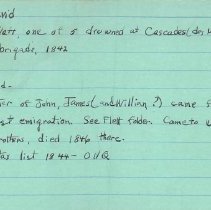 vid
Flett, one of 5 drowned at Cascades
brigade, 1842
d.
er of John, James (and William?) came
st emigration. See Flett folder. Came to
rothers, died 1846 there.
tas list 1844 - OHQ